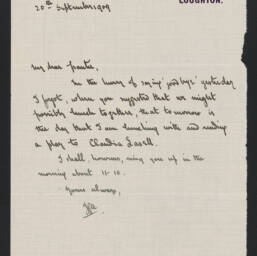 LOUGHTON.
20th September 1909
My dear
In the hurry of saying "goodbye" yesterday
I forgot, when you suggested that we might
possibly lunch together, that to-morrow is
the day that I am lunching with and reading
a play to Claudia Lasell.
I shall, however, ring you up in the
morning about 11-10.
Yours always,